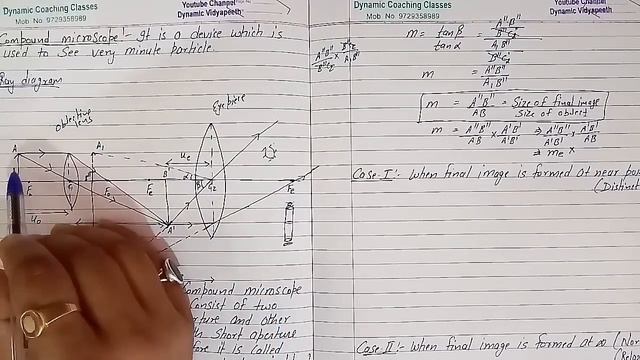 Dynamic Coaching Classes
Mob No 9729358989
Youtube Channel
Dynamic Vidyapeeth
Compound microscope :- It is a device which is
used to see very minute particle.
Ray diagram
objective
lens
Eye piece
A
A1
ue
B
F
C2
A'
uo
Compound microscope
consist of two
and other
short aperture
it is called
Dynamic Coaching Classes
Mob No. 9729358989
Youtube Channel
Dynamic Vidyapeeth
m = tanβ / tanα = A"B" / B"C2 / A1B" / B"C2
A"B" / B"C2 × B"C2 / A1B"
m = A"B" / A1B"
m = A"B" / AB = Size of final image / Size of object
m = A"B" / AB × A'B' / A'B' ⇒ A"B" / A'B' × A'B' / AB
⇒ me ×
Case-I :- When final image is formed at near
(Distinct
Case II :- When final image is formed at ∞